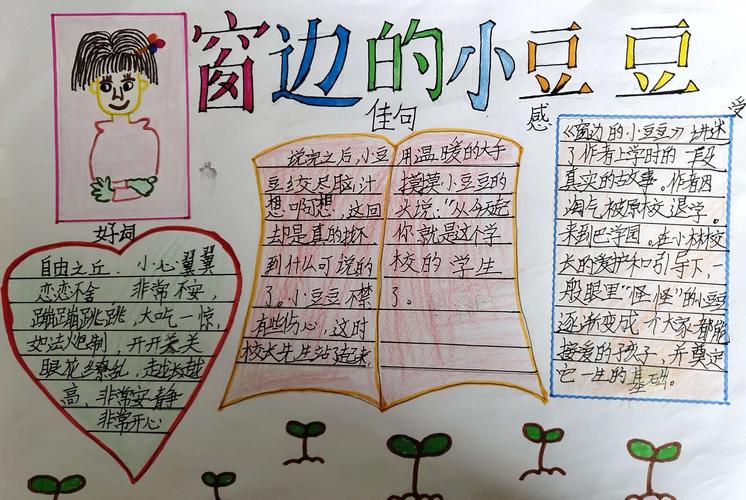 窗边的小豆豆
好词
自由之丘、小心翼翼
恋恋不舍 非常不安,
蹦蹦跳跳,大吃一惊,
如法炮制,开开关关
眼花缭乱,越长越
高、非常安静
非常开心
佳句
说完之后,小豆
豆绞尽脑汁
想啊想,这回
却是真的找不
到什么可说的
了。小豆豆不禁
有些伤心,这时
校长先生站了起来,
用温暖的大手
摸摸小豆豆的
头说:“从今天起
你就是这个学
校的学生
了。
感受
《窗边的小豆豆》讲述
了作者上学时的一段
真实的故事。作者因
淘气被原校退学。
来到巴学园。在小林校
长的爱护和引导下,一
般眼里“怪怪”的小豆豆
逐渐变成一个大家都能
接受的孩子,并奠定
它一生的基础。